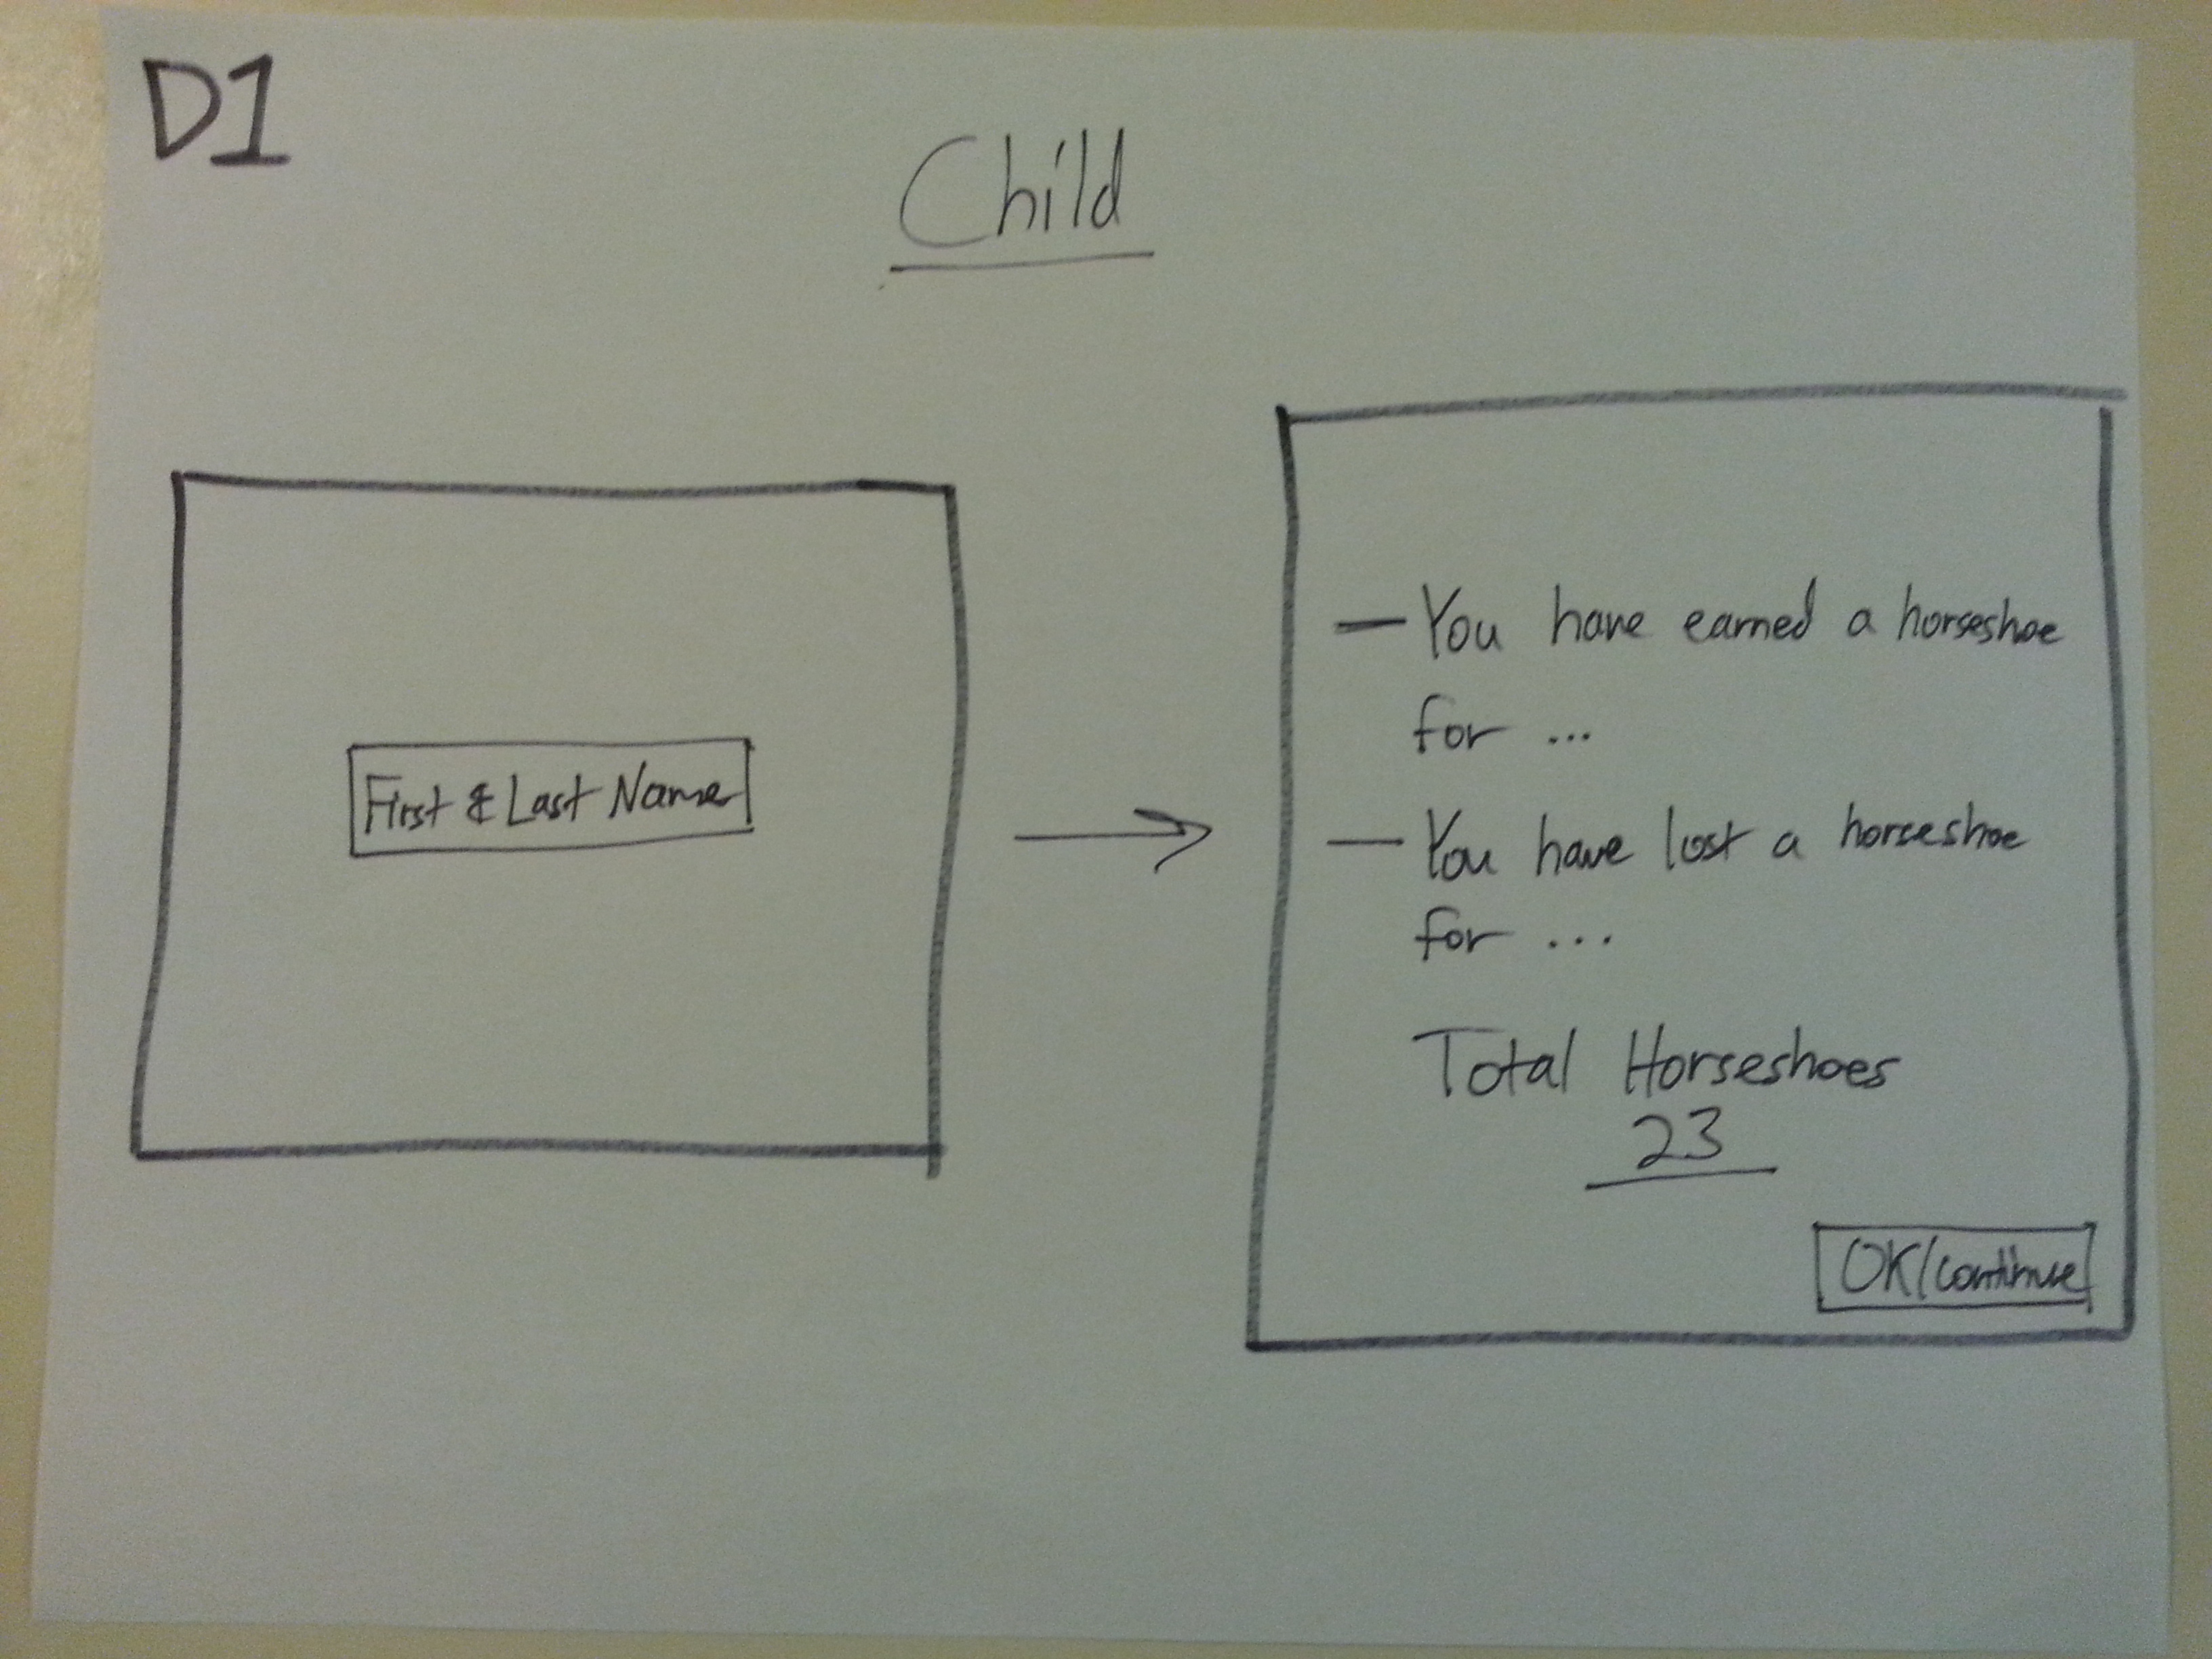 D1
Child
First & Last Name
— You have earned a horseshoe
for ...
— You have lost a horseshoe
for ...
Total Horseshoes
23
OK/continue